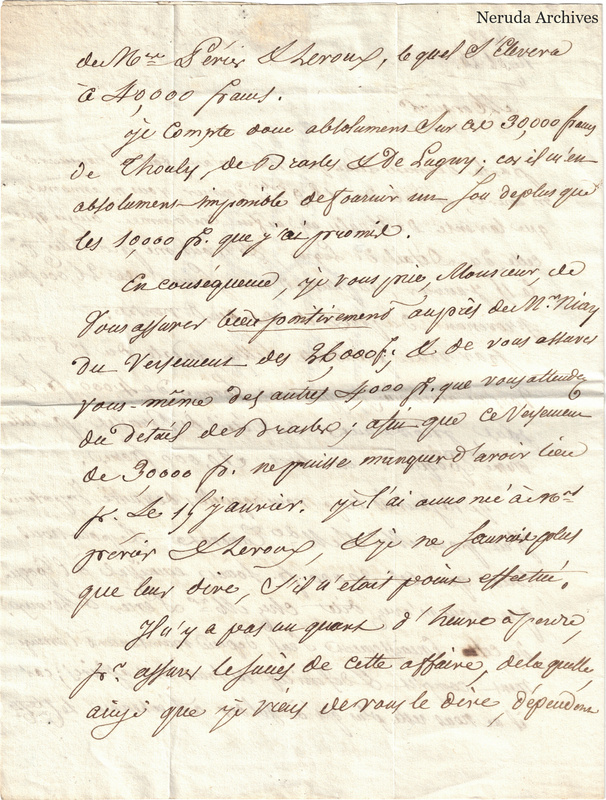 Neruda Archives
de Mrs Périer & Leroux, le quel s'Elevera
à 40,000 francs.
je compte donc absolument sur ces 30,000 francs
de Thouly, de Brasles & De Lagny; car il m'en
absolument impossible de fournir un sou de plus que
les 10,000 fr. que j'ai promis.
En conséquence, je vous prie, Monsieur, de
vous assurer bien positivement auprès de Mr. Niay
du Versement des 26,000 f; & de vous assurer
vous-même des autres 4,000 fr. que vous attendez
du détail de Brasles; afin que ce Versement
de 30000 fr. ne puisse manquer d'avoir lieu
pr. Le 15 janvier. je l'ai annoncé à Mrs
périer & Leroux, & je ne saurais plus
que leur dire, s'il n'était point effectué.
Il n'y a pas un quart d'heure à perdre,
pr. assurer le succès de cette affaire, de laquelle,
ainsi que je viens de vous le dire, dépendent